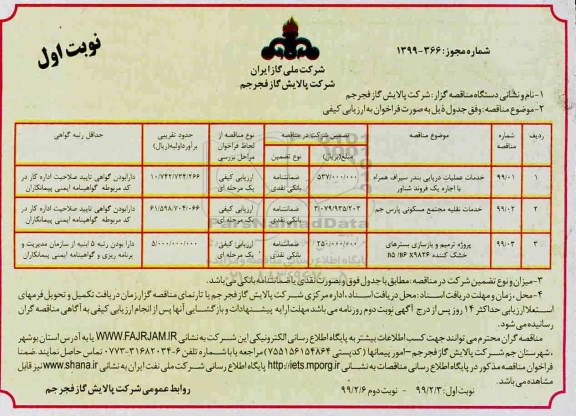 نوبت اول
شماره مجوز: ۳۶۶-۱۳۹۹
شرکت ملی گاز ایران
شرکت پالایش گاز فجر جم
۱-نام و نشانی دستگاه مناقصه گزار: شرکت پالایش گاز فجر جم
۲-موضوع مناقصه: وفق جدول ذیل به صورت فراخوان به ارزیابی کیفی
ردیف شماره مناقصه موضوع مناقصه تضمین شرکت در مناقصه مبلغ(ریال) نوع تضمین نوع مناقصه از لحاظ فراخوان مراحل بررسی حدود تقریبی برآورد اولیه(ریال) حداقل رتبه گواهی
۱ ۹۹/۰۱ خدمات عملیات دریایی بندر سیراف همراه با اجاره یک فروند شناور ۵۳۷/۰۰۰/۰۰۰ ضمانتنامه بانکی نقدی ارزیابی کیفی یک مرحله ای ۱۰/۷۴۲/۷۳۴/۲۶۶ دارابودن گواهی تایید صلاحیت اداره کار در کد مربوطه گواهینامه ایمنی پیمانکاران
۲ ۹۹/۰۲ خدمات نقلیه مجتمع مسکونی پارس جم ۳/۰۷۹/۹۳۵/۲۰۳ ضمانتنامه بانکی نقدی ارزیابی کیفی یک مرحله ای ۶۱/۵۹۸/۷۰۴/۰۶۶ دارابودن گواهی تایید صلاحیت اداره کار در کد مربوطه گواهینامه ایمنی پیمانکاران
۳ ۹۹/۰۳ پروژه ترمیم و بازسازی بسترهای خشک کننده ۲۵۰/۰۰۰/۰۰۰ ضمانتنامه بانکی نقدی ارزیابی کیفی یک مرحله ای ۵/۰۰۰/۰۰۰/۰۰۰ دارا بودن رتبه ۵ ابنیه از سازمان مدیریت و برنامه ریزی و گواهینامه ایمنی پیمانکاران
۳-میزان و نوع تضمین شرکت در مناقصه: مطابق با جدول فوق و بصورت نقدی یا ضمانتنامه بانکی می باشد.
۴-محل، زمان و مهلت دریافت اسناد: محل دریافت اسناد، اداره مرکزی شرکت پالایش گاز فجر جم یا تارنمای مناقصه گزار زمان دریافت تکمیل و تحویل فرمهای
استعلام ارزیابی حداکثر ۱۴ روز پس از درج آگهی نوبت دوم روزنامه می باشد مهلت ارایه پیشنهادات و بازگشایی آنها پس از انجام ارزیابی کیفی به آگاهی مناقصه گران
رسانیده می شود.
مناقصه گران محترم می توانند جهت کسب اطلاعات بیشتر به پایگاه اطلاع رسانی الکترونیکی این شرکت به نشانی WWW.FAJRJAM.IR یا به آدرس استان بوشهر
،شهرستان جم شرکت پالایش گاز فجر جم -امور پیمانها (کدپستی ۷۵۵۱۵۶۱۵۴۸۶۴) مراجعه یا با شماره تلفن ۶-۰۷۷۳-۳۱۶۸۲۰۳۴ تماس حاصل نمایند. ضمنا
فراخوان مناقصه مذکور در پایگاه اطلاع رسانی مناقصات به نشانی http://iets.mporg.ir پایگاه اطلاع رسانی شرکت ملی نفت ایران به نشانی www.shana.ir نیز قابل
مشاهده می باشد.
نوبت اول: ۹۹/۲/۳ - نوبت دوم ۹۹/۲/۶
روابط عمومی شرکت پالایش گاز فجر جم